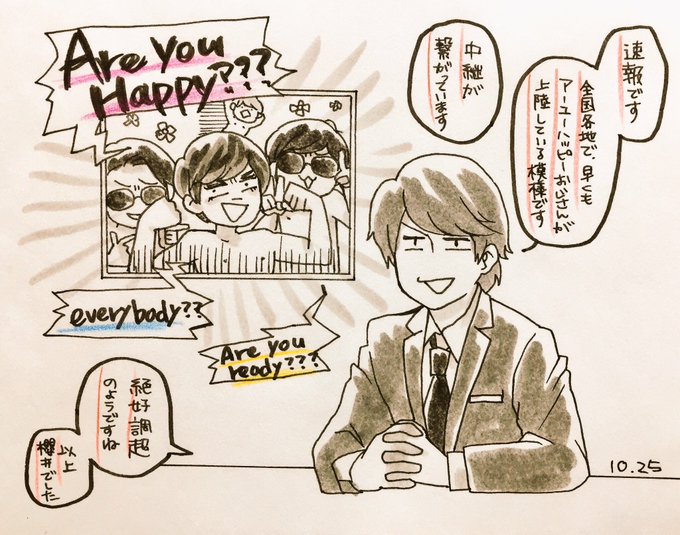 速報です
全国各地で、早くも
アーユーハッピーおじさんが
上陸している模様です
中継が
繋がっています
Are you
Happy???
everybody??
Are you
ready???
絶好調超
のようですね
以上
櫻井でした
10.25